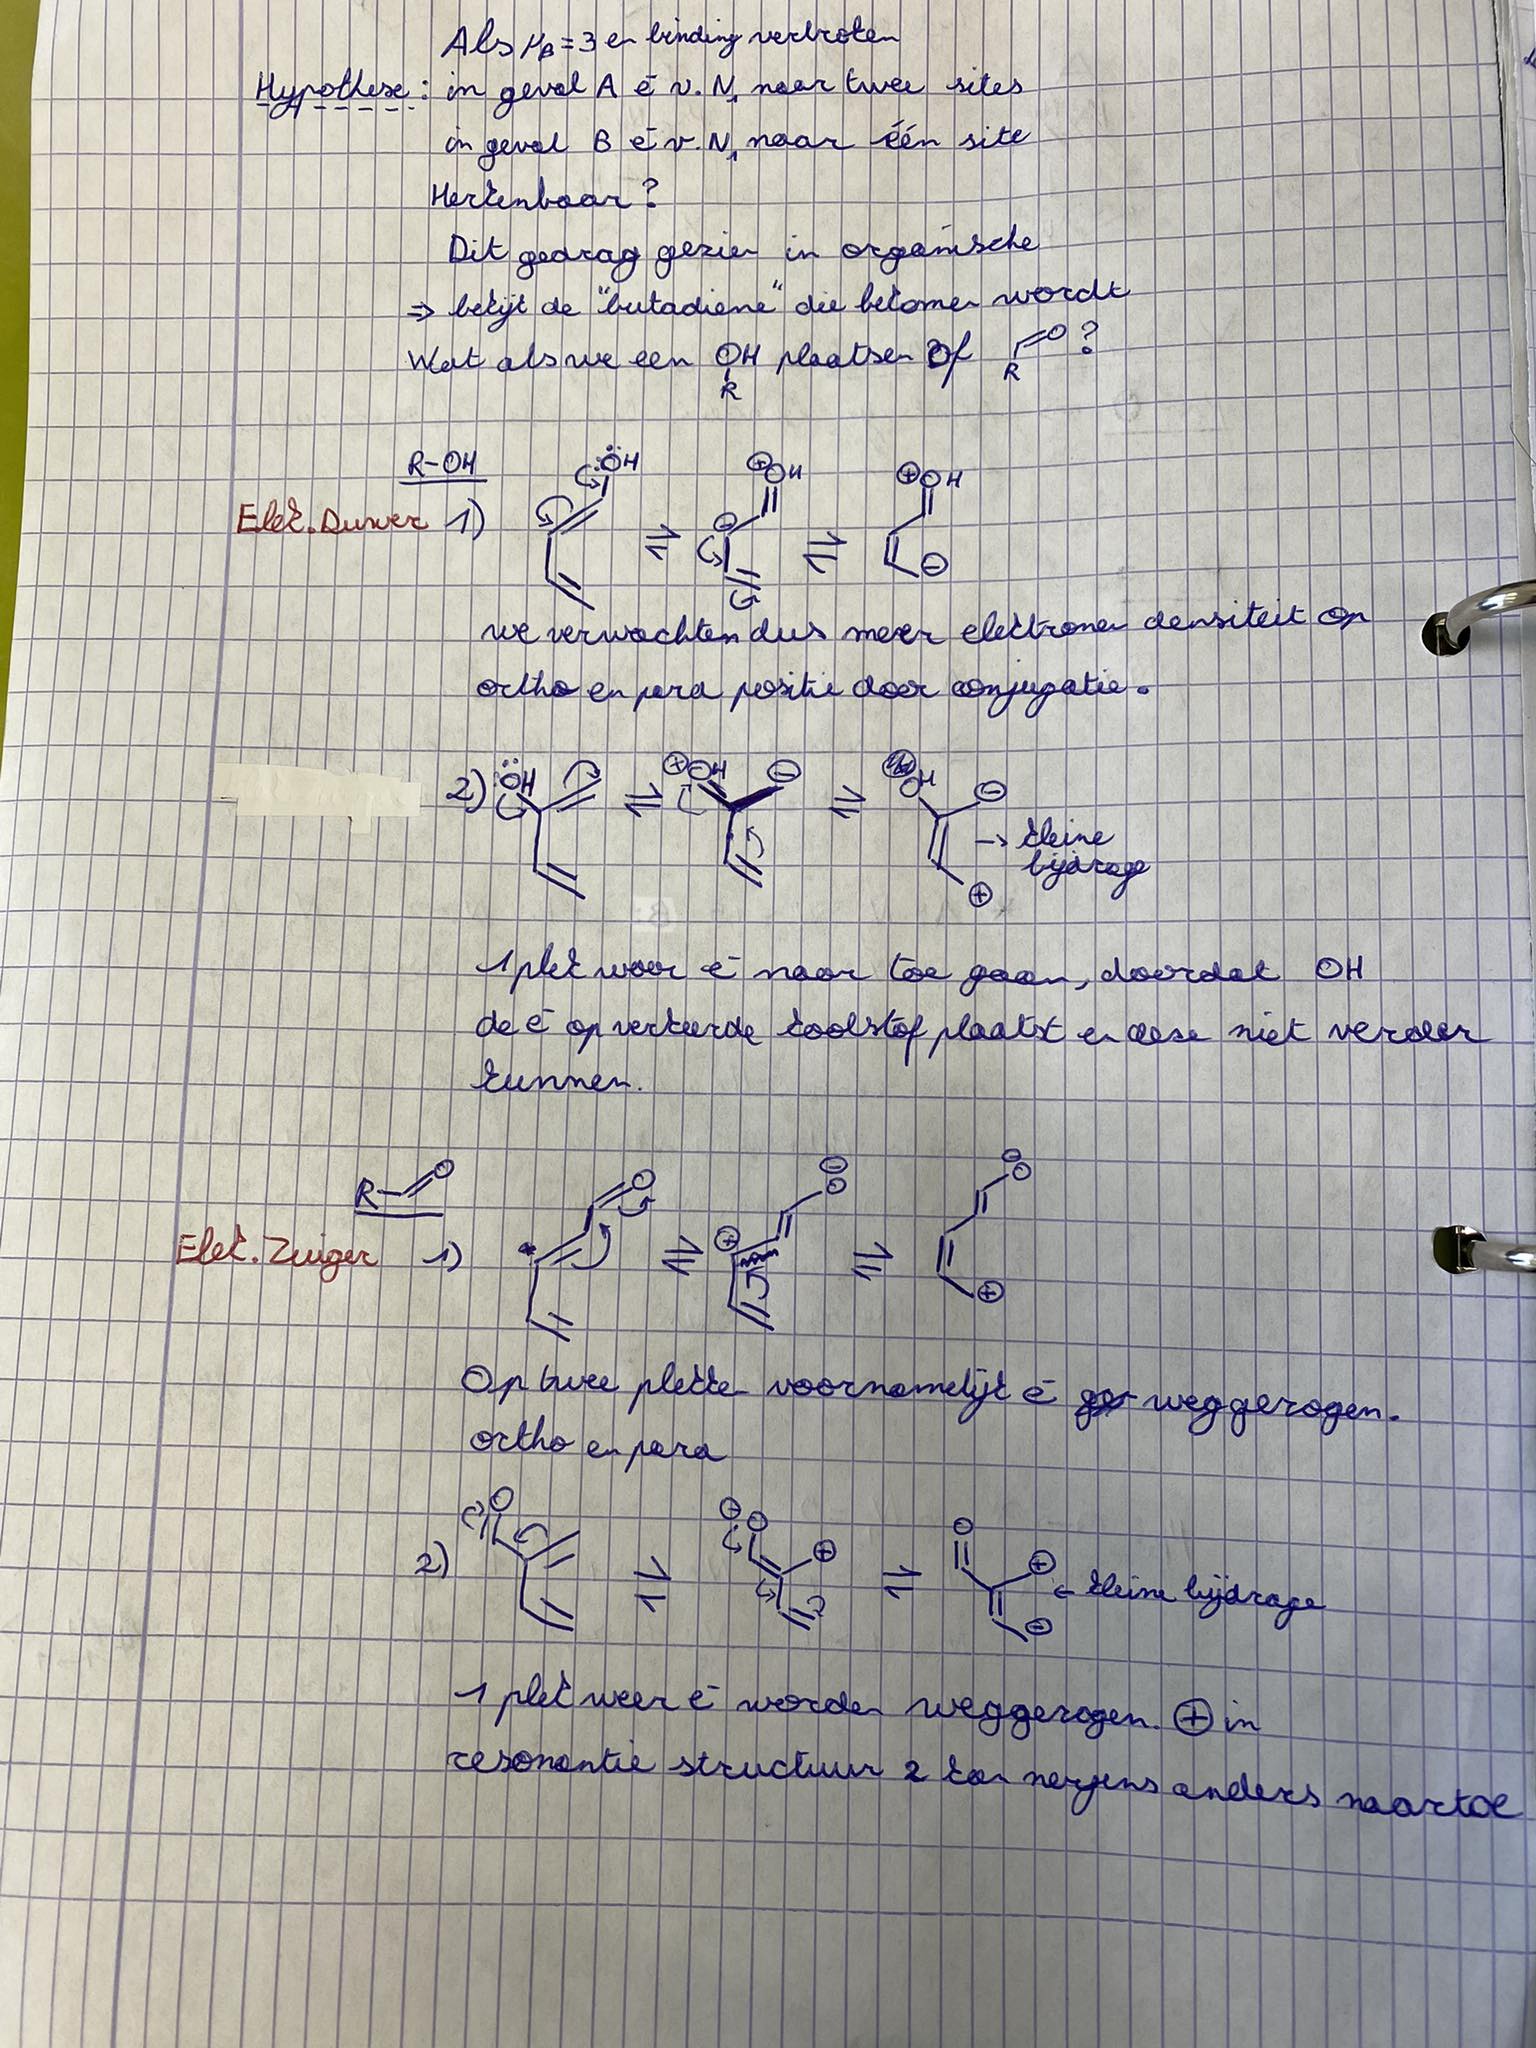 Als μB = 3 en binding verbroken
Hypothese: in geval A e⁻ v. N₁ naar twee sites
in geval B e⁻ v. N₁ naar één site
Herkenbaar?
Dit gedrag gezien in organische
⇒ bekijk de "butadiene" die bekomen wordt
Wat als we een OH plaatsen? Of O?
R R
R-OH
ÖH ⊕OH ⊕OH
Elek. Duwer 1) ⇌ ⊖ ⇌ ⊖
we verwachten dus meer electronen densiteit op
ortho en para positie door conjugatie.
2) ÖH ⇌ ⊕OH ⊖ ⇌ OH ⊖
→ kleine
bijdrage
⊕
1 plek waar e⁻ naar toe gaan, doordat OH
de e⁻ op verkeerde koolstof plaatst en deze niet verder
kunnen.
R O
O ⊖O ⊖O
Elek. Zuiger 1) ⇌ ⊕ ⇌ ⊕
Op twee plekken voornamelijk e⁻ weggezogen.
ortho en para
O ⊖O O
2) ⇌ ⊕ ⇌ ⊕ ← kleine bijdrage
⊖
1 plek weer e⁻ worden weggezogen. ⊕ in
resonantie structuur 2 kan nergens anders naartoe